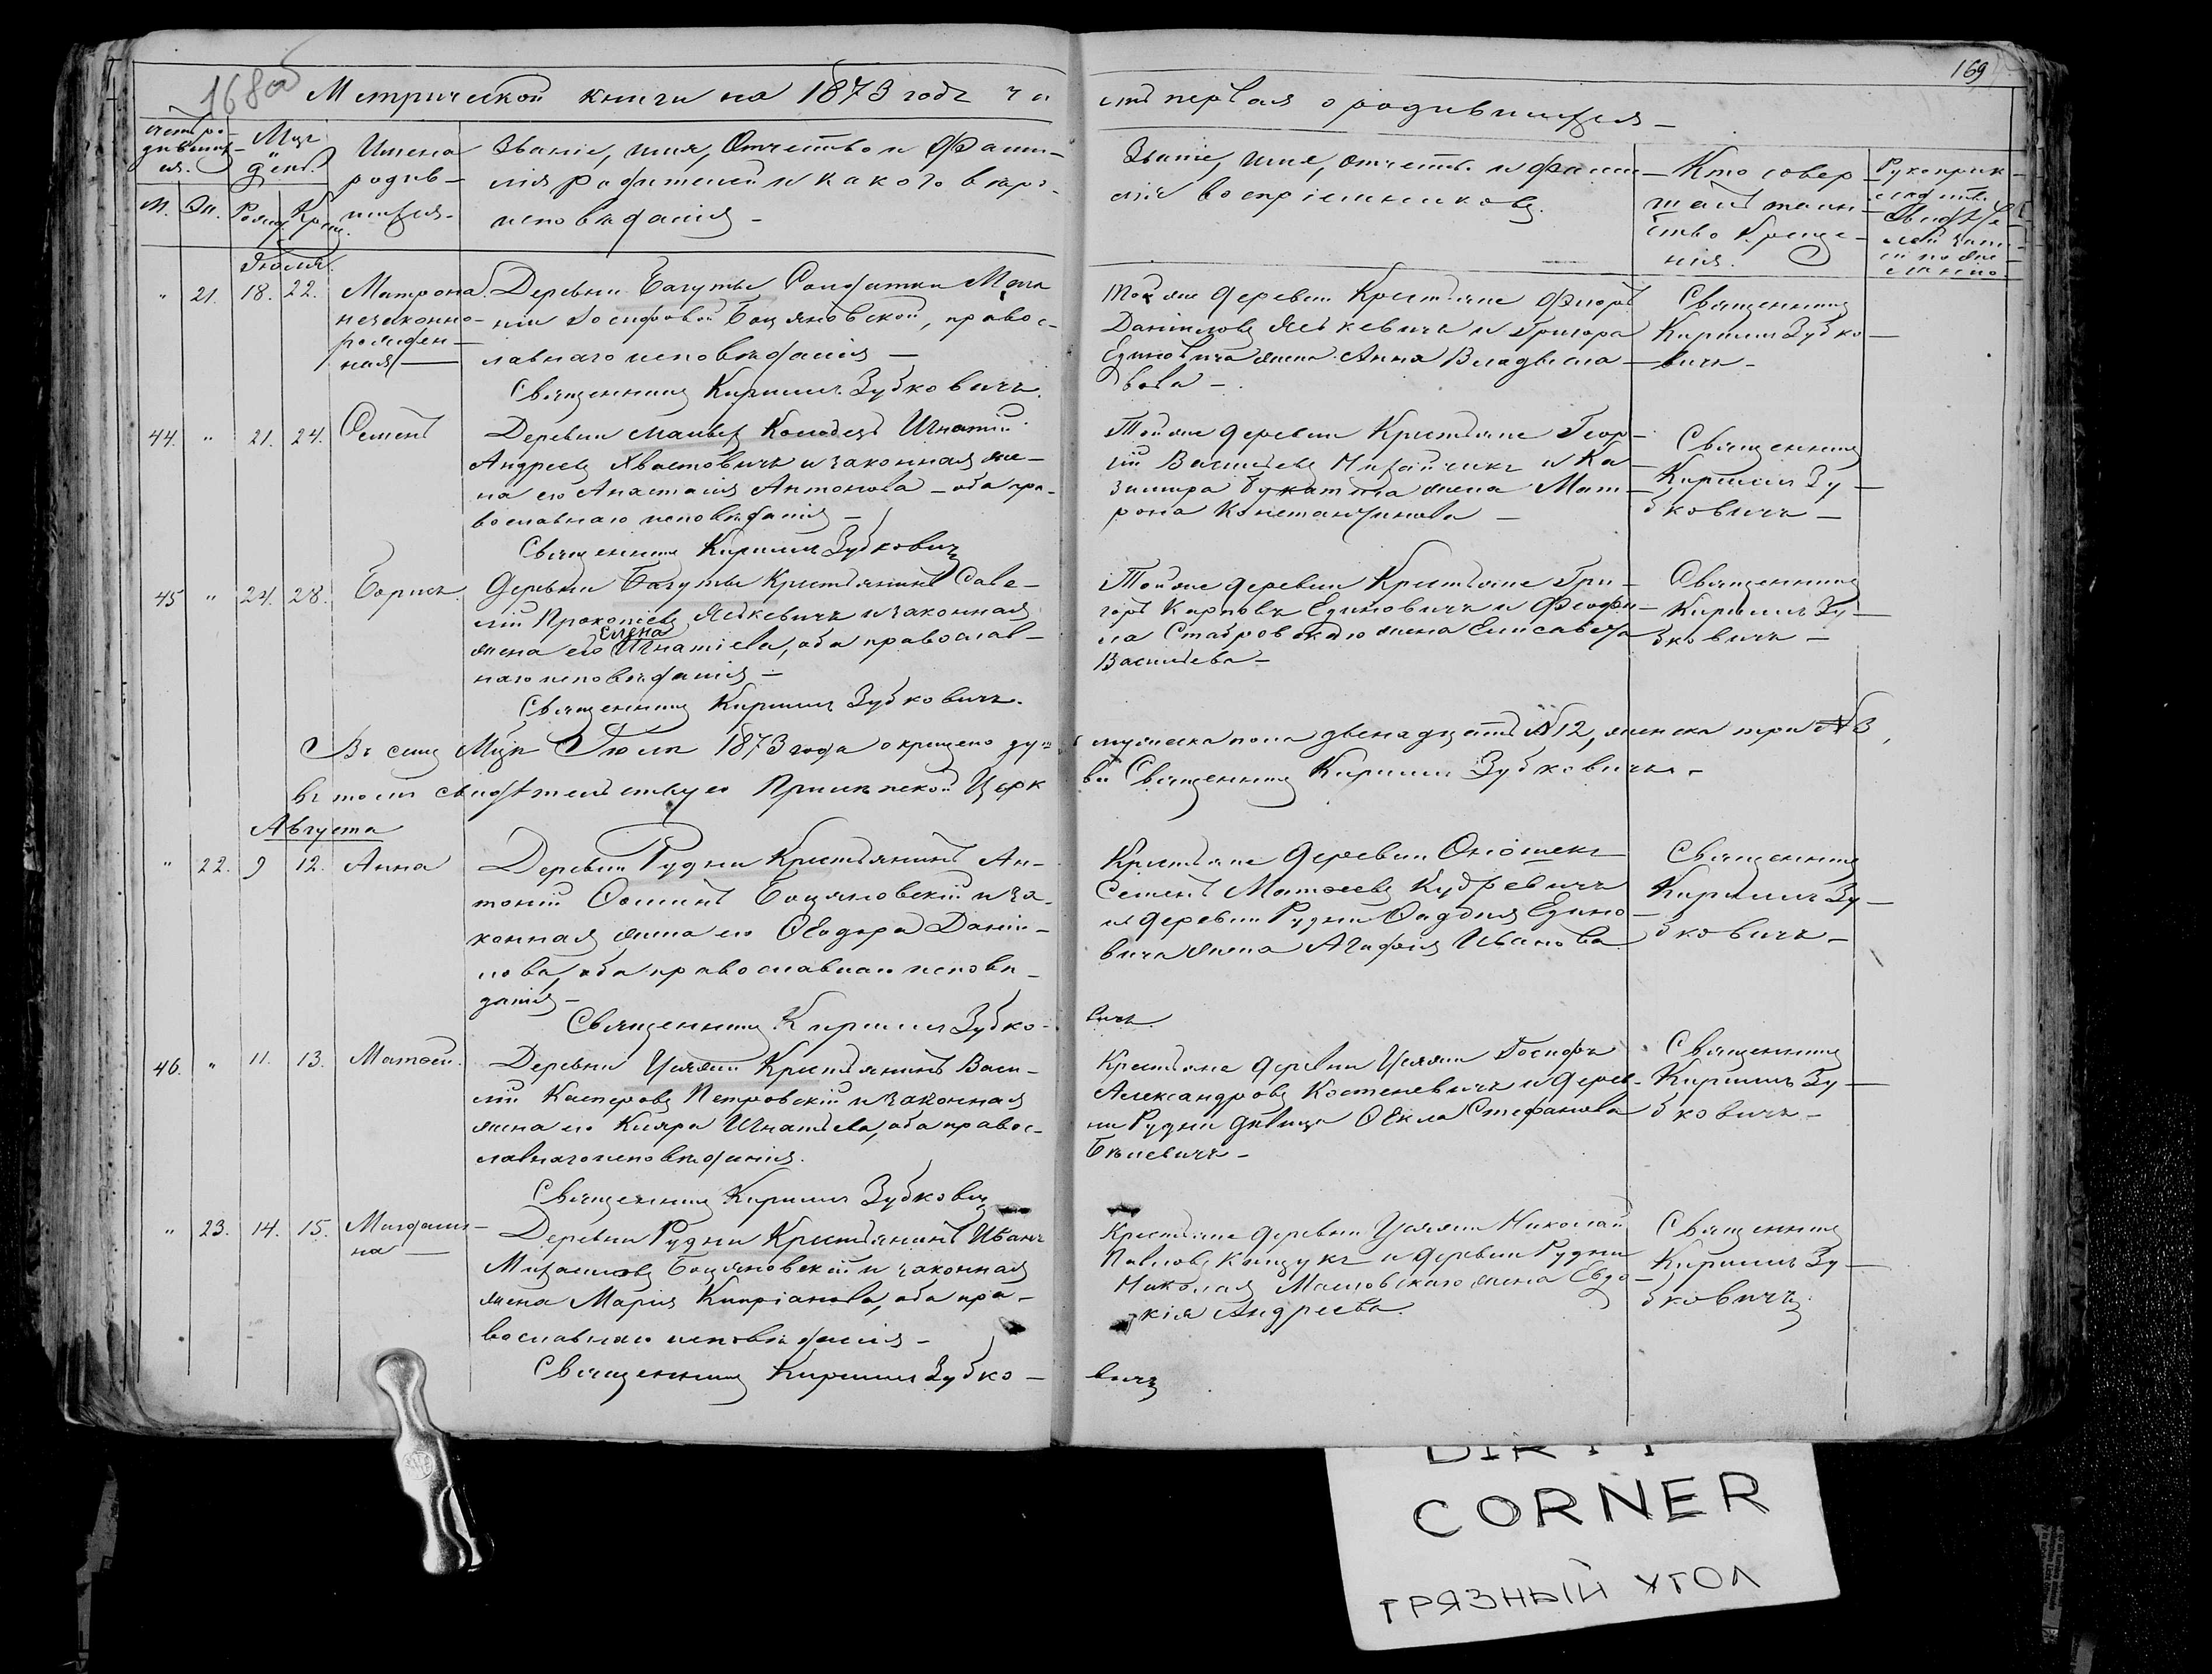 168об
169
Метрической книги на 1873 годъ часть первая о родившихся
Счетъ родившихся.
Мцъ и день.
Имена родившихся.
Званіе, имя, Отчество и Фамилія родителей и какого вѣроисповѣданія
Званіе, имя, отчество и фамилія воспріемниковъ.
Кто совершалъ таинство Крещенія.
М. Ж. Рожд. Крещ.
Іюля.
" 21. 18. 22. Матрона незаконнорожденная
Деревни Багуты Солдатка Мела
нія Іосифова Боцяновской, правос-
лавнаго исповѣданія
Священникъ Кириллъ Зубковичъ.
Той же деревни Крестьяне Ѳеодоръ
Даніиловъ Яцкевичъ и Григора
Единовича жена Анна Владысла-
вова
Священникъ
Кириллъ Зубко-
вичъ
44. " 21. 24. Семенъ
Деревни Колодезь Игнатій
Андреевъ Хвастовичъ и законная же-
на его Анастасія Антонова - оба пра-
вославнаго исповѣданія
Священникъ Кириллъ Зубковичъ
Той же деревни Крестьяне Геор-
гій Васильевъ и Ка-
зимира жена Мат-
рона Константинова
Священникъ
Кириллъ Зу-
бковичъ
45 " 24. 28. Борисъ.
Деревни Багуты Крестьянинъ Саве-
лій Прокопіевъ Яцкевичъ и законная
жена его Елена Игнатіева, оба православ-
наго исповѣданія
Священникъ Кириллъ Зубковичъ.
Той же деревни Крестьяне Гри-
горъ Карповъ Единовичъ и Ѳеофи-
ла Ставровскаго жена Елисавета
Васильева
Священникъ
Кириллъ Зу-
бковичъ
Въ семъ Мцѣ Іюлѣ 1873 года окрещено душъ мужеска пола двенадцать №12, женска три №3,
въ томъ свидѣтельствую Церкви Священникъ Кириллъ Зубковичъ.
Августа
" 22. 9 12. Анна
Деревни Рудни Крестьянинъ Ан-
тоній Боцяновскій и за-
конная жена его Ѳеодора Даніи-
лова, оба православнаго исповѣ-
данія
Священникъ Кириллъ Зубко-
вичъ.
Крестьяне деревни Онюшекъ
Семенъ Матѳеевъ Кудревичъ
и деревни Рудни Едино-
вича жена Агафія Иванова
Священникъ
Кириллъ Зу-
бковичъ
46. " 11. 13. Матѳей.
Деревни Крестьянинъ Васи-
лій Касперовъ Петровскій и законная
жена его Кира Игнатьева, оба правос-
лавнаго исповѣданія.
Священникъ Кириллъ Зубковичъ
Крестьяне деревни Іосифъ
Александровъ Костеневичъ и дерев-
ни Рудни дѣвица Ѳекла Стефанова
Бѣлевичъ
Священникъ
Кириллъ Зу-
бковичъ
" 23. 14. 15. Магдали-
на
Деревни Рудни Крестьянинъ Иванъ
Михаиловъ Боцяновскій и законная
жена Марія Кипріанова, оба пра-
вославнаго исповѣданія
Священникъ Кириллъ Зубко-
вичъ
Крестьяне деревни Николай
Павловъ и деревни Рудни
Николая жена Евдо-
кія Андреева.
Священникъ
Кириллъ Зу-
бковичъ.
DIRTY
CORNER
ГРЯЗНЫЙ УГОЛ